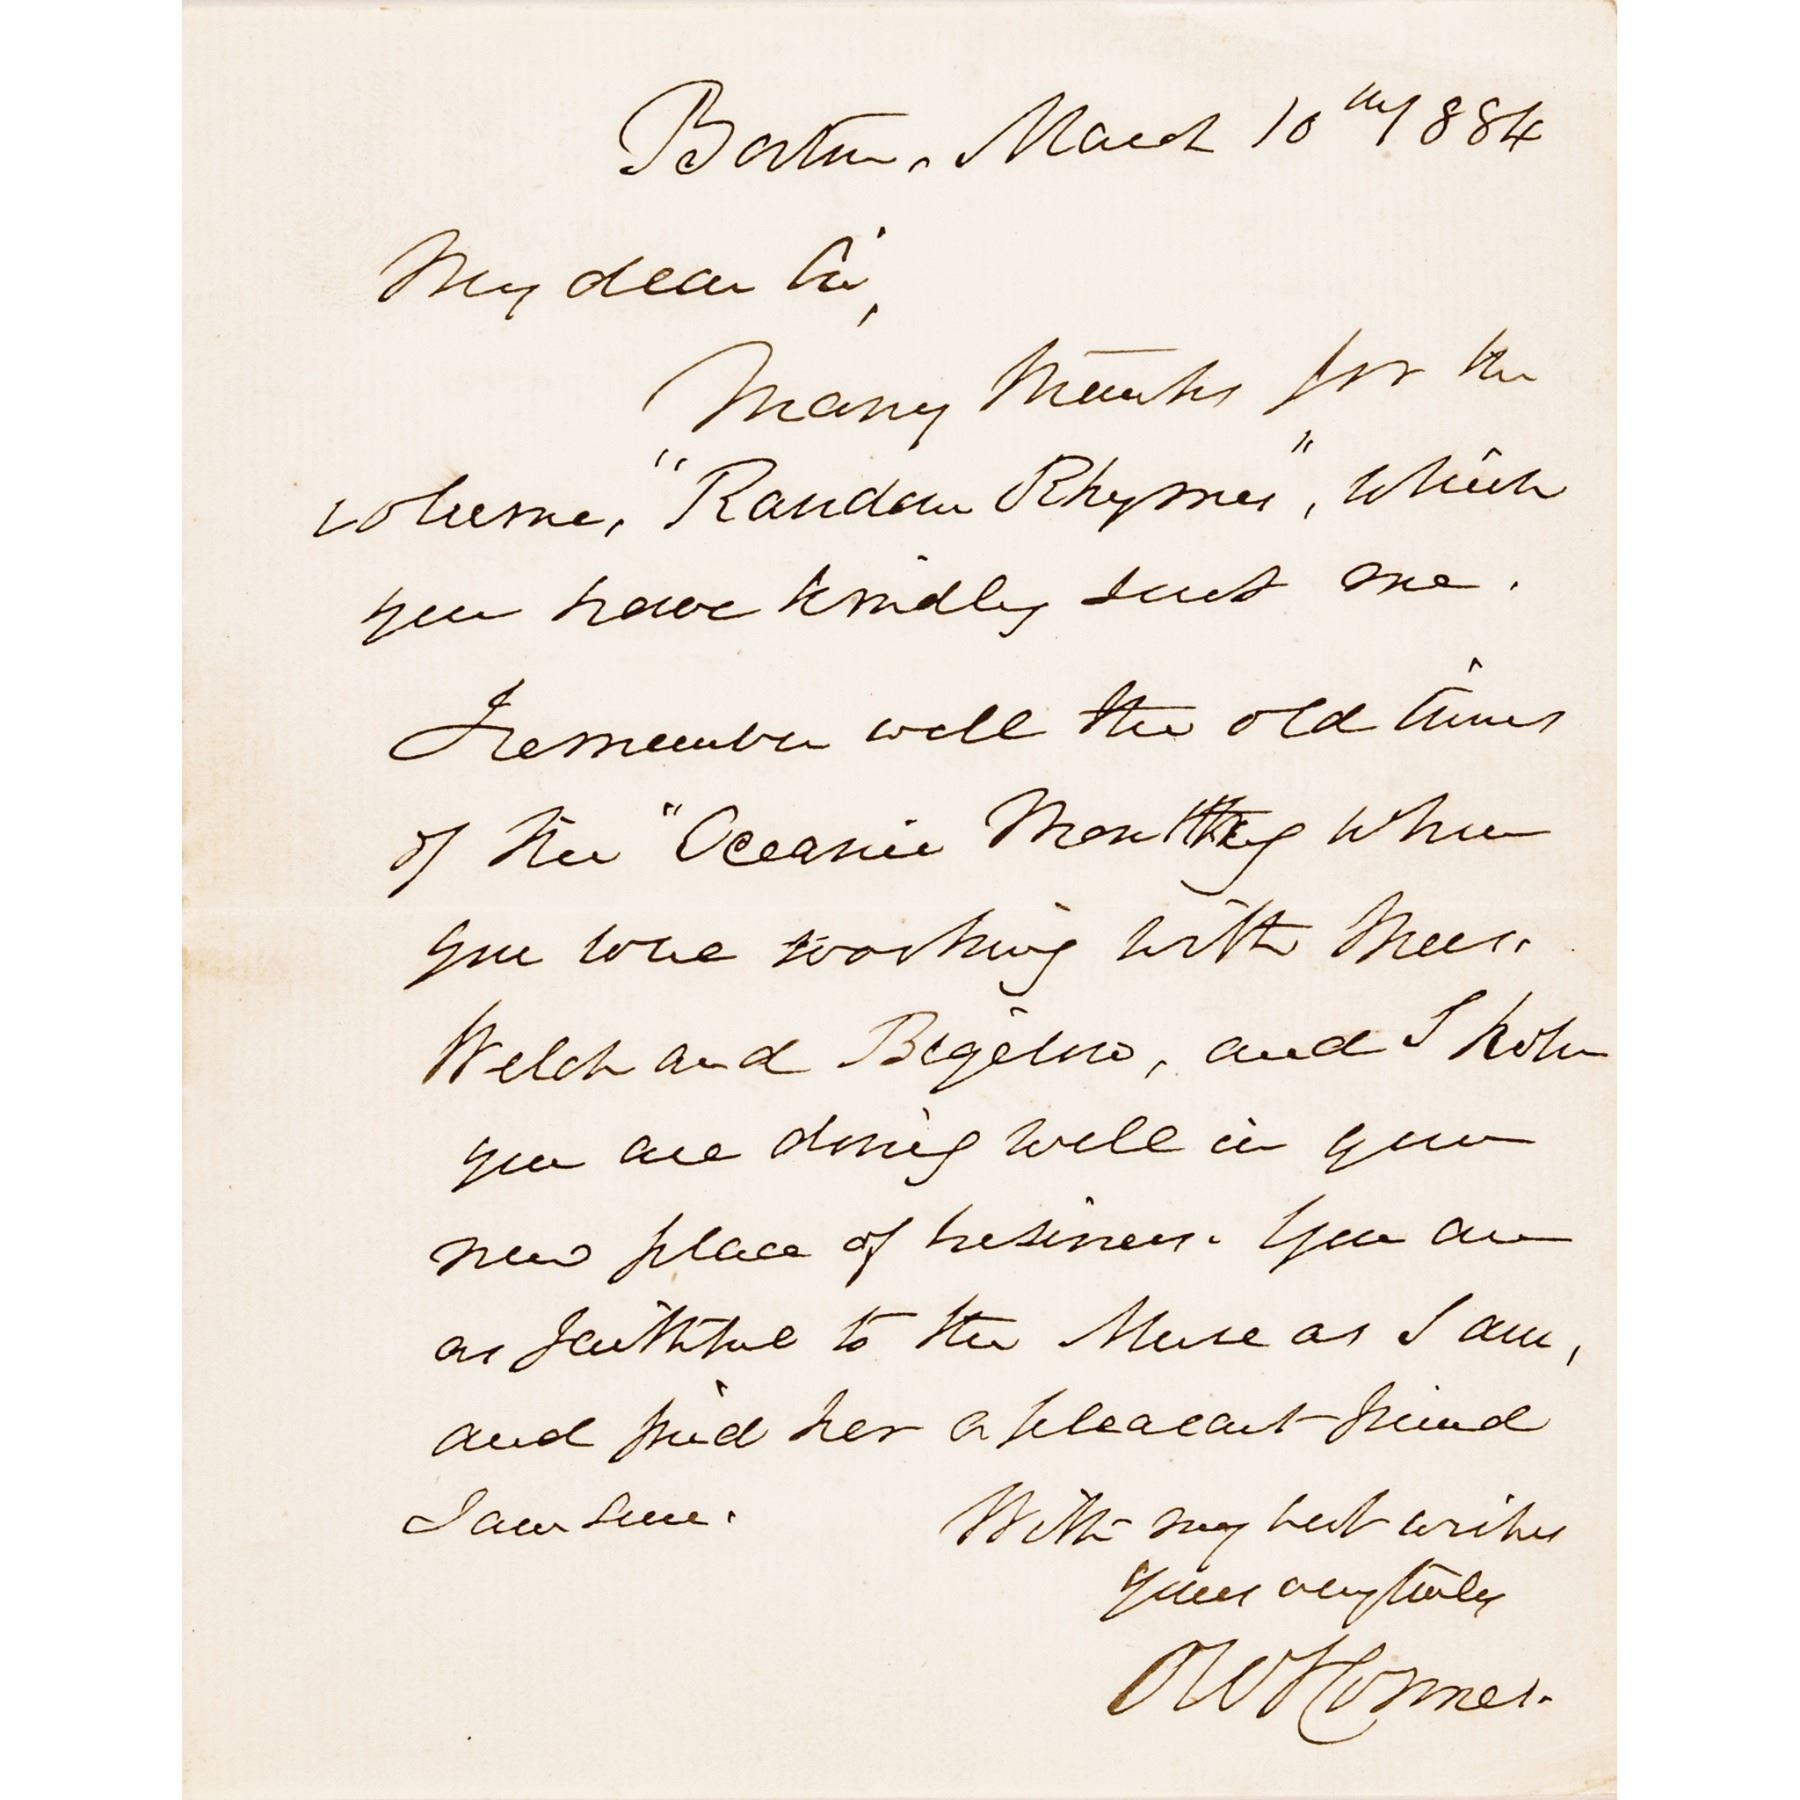 Boston, March 10th 1884
My dear Sir,
Many thanks for the
volume, "Random Rhymes", which
you have kindly sent me.
I remember well the old times
of the "Oceanic Monthly when
you were working with Mess.
Welch and Bigelow, and I hope
you are doing well in your
new place of business. You are
as faithful to the Muse as I am,
and find her a pleasant friend
I am sure.
With my best wishes
Yours very truly
O W Holmes.